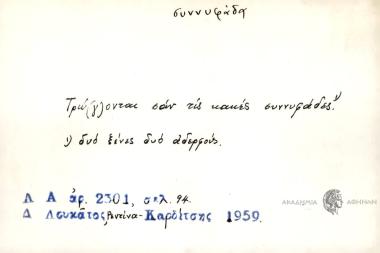 συννυφάδα
Τρώγλονται σάν τίς κακές συννυφάδες.¹⁾
1) δυό ξένες δυό αδερφούς.
Λ Α άρ. 2301, σελ. 94.
Δ Λουκᾶτος, Ρεντίνα-Καρδίτσης 1959.
ΑΚΑΔΗΜΙΑ ΑΘΗΝΩΝ